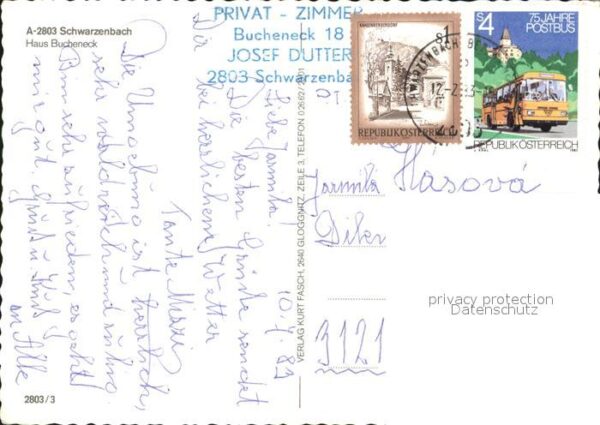 A-2803 Schwarzenbach
Haus Bucheneck
PRIVAT - ZIMMER
Bucheneck 18
JOSEF DUTTER
2803 Schwarzenba
S1
REPUBLIK ÖSTERREICH
S4
75 JAHRE
POSTBUS
REPUBLIK ÖSTERREICH
VERLAG KURT FASCH, 2640 GLOGGNITZ, ZEILE 3, TELEFON 0 26 62
10.7.83
Liebe Jarmila!
Die besten Grüße sendet
Dir
bei herrlichem Wetter
Tante Mizzi
Die Umgebung ist herrlich,
sehr waldreich und
Bin sehr zufrieden, es geht
mir gut. Gruß u. Kuß
an Alle
Jarmila Hasová
3121
privacy protection
Datenschutz
2803/3